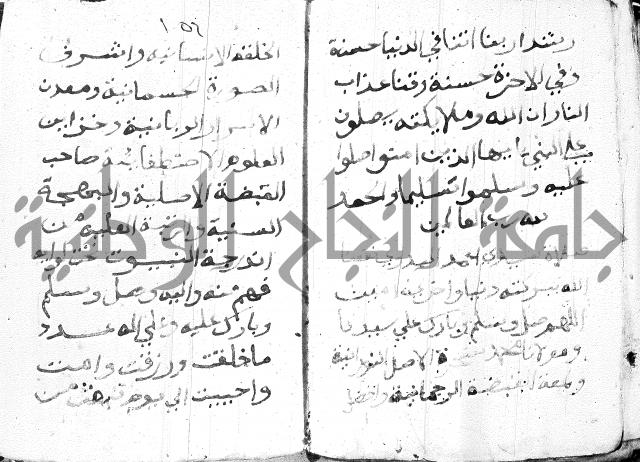 رشدا ربنا اتنا في الدنيا حسنة
وفي الاخرة حسنة وقنا عذاب
النار ان الله وملايكته يصلون
علي النبي يا ايها الذين امنوا صلوا
عليه وسلموا تسليما والحمد
لله رب العالمين
الله ببركته دنيا واخرة امين
اللهم صل وسلم وبارك علي سيدنا
ومولانا محمد شجرة الاصل النورانية
ولمعة القبضة الرحمانية وافضل
١٥٦
الخلقة الانسانية واشرف
الصورة الجسمانية ومعدن
الاسرار الربانية وخزاين
العلوم الاصطفائية صاحب
القبضة الاصلية والبهجة
السنية والرتبة العلية من
اندرجة النبيون تحت لوايه
فهم منه واليه وصل وسلم
وبارك عليه وعلي اله عدد
ما خلقت ورزقت وامت
واحييت الي يوم تبعث من
جامعة النجاح الوطنية